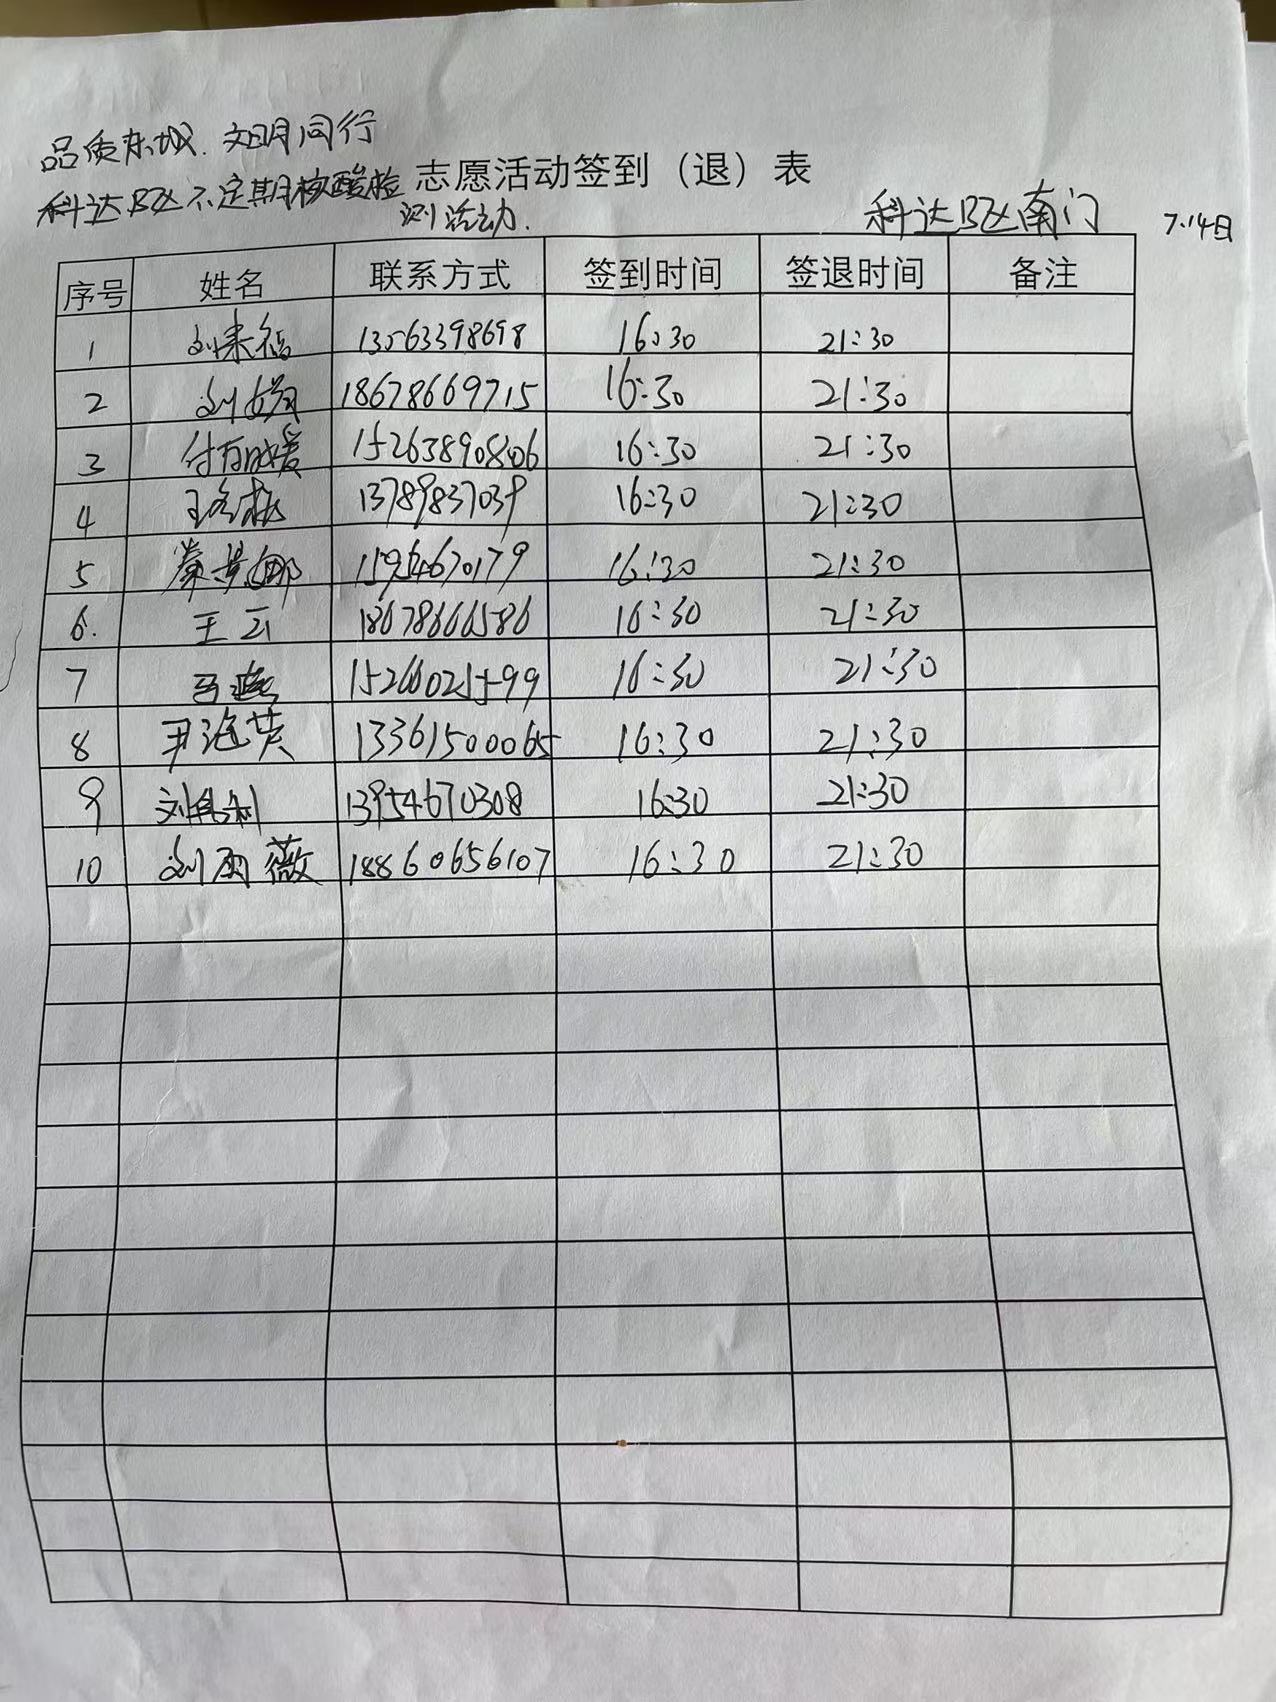 品质东城.文明同行
科达B区不定期核酸检 志愿活动签到（退）表
测活动.
科达B区南门 7.14日
序号 姓名 联系方式 签到时间 签退时间 备注
1 刘来福 13563398698 16:30 21:30
2 刘 18678669715 16:30 21:30
3 16:30 21:30
4 13789837039 16:30 21:30
5 娜 15954670179 16:30 21:30
6. 王云 18678666586 16:30 21:30
7 马燕 16:30 21:30
8 尹 英 13361500065 16:30 21:30
9 刘 利 13954670308 16:30 21:30
10 刘雨薇 18860656107 16:30 21:30